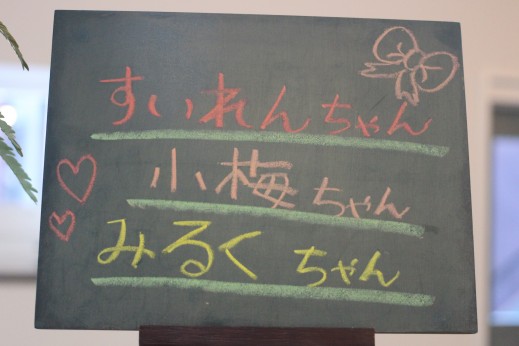 すいれんちゃん
小梅ちゃん
みるくちゃん